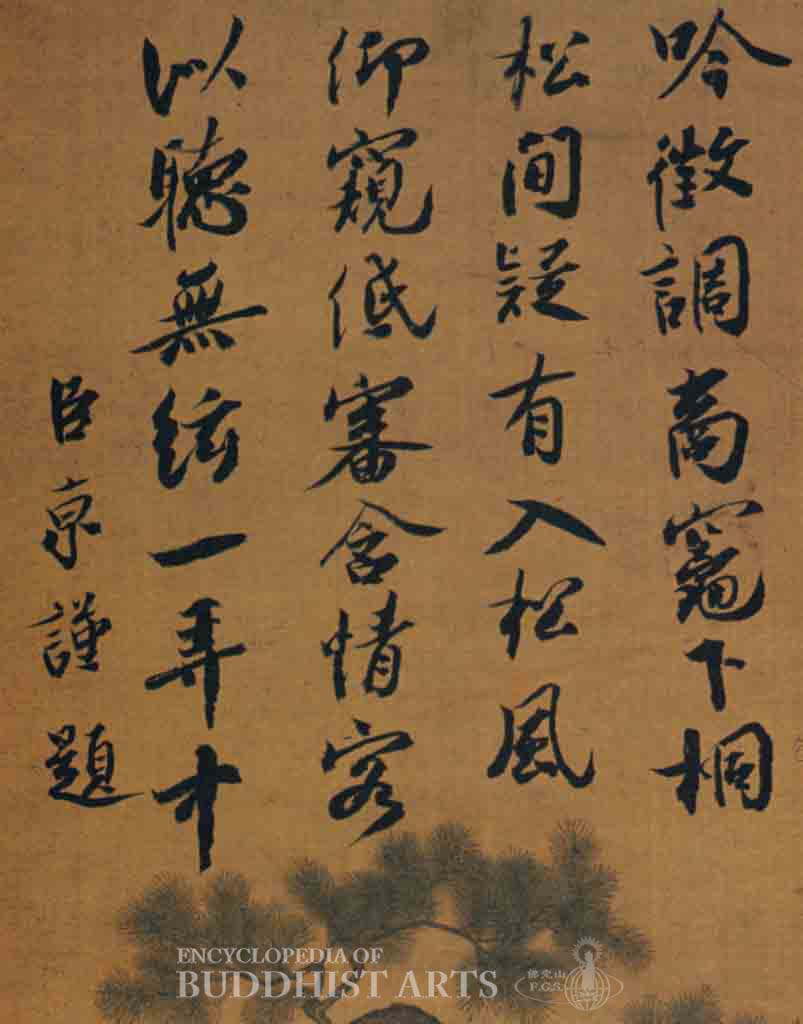 吟徵調商竈下桐
松間疑有入松風
仰窺低審含情客
以聽無絃一弄中
臣京謹題
ENCYCLOPEDIA OF
BUDDHIST ARTS
佛光山
F.G.S.